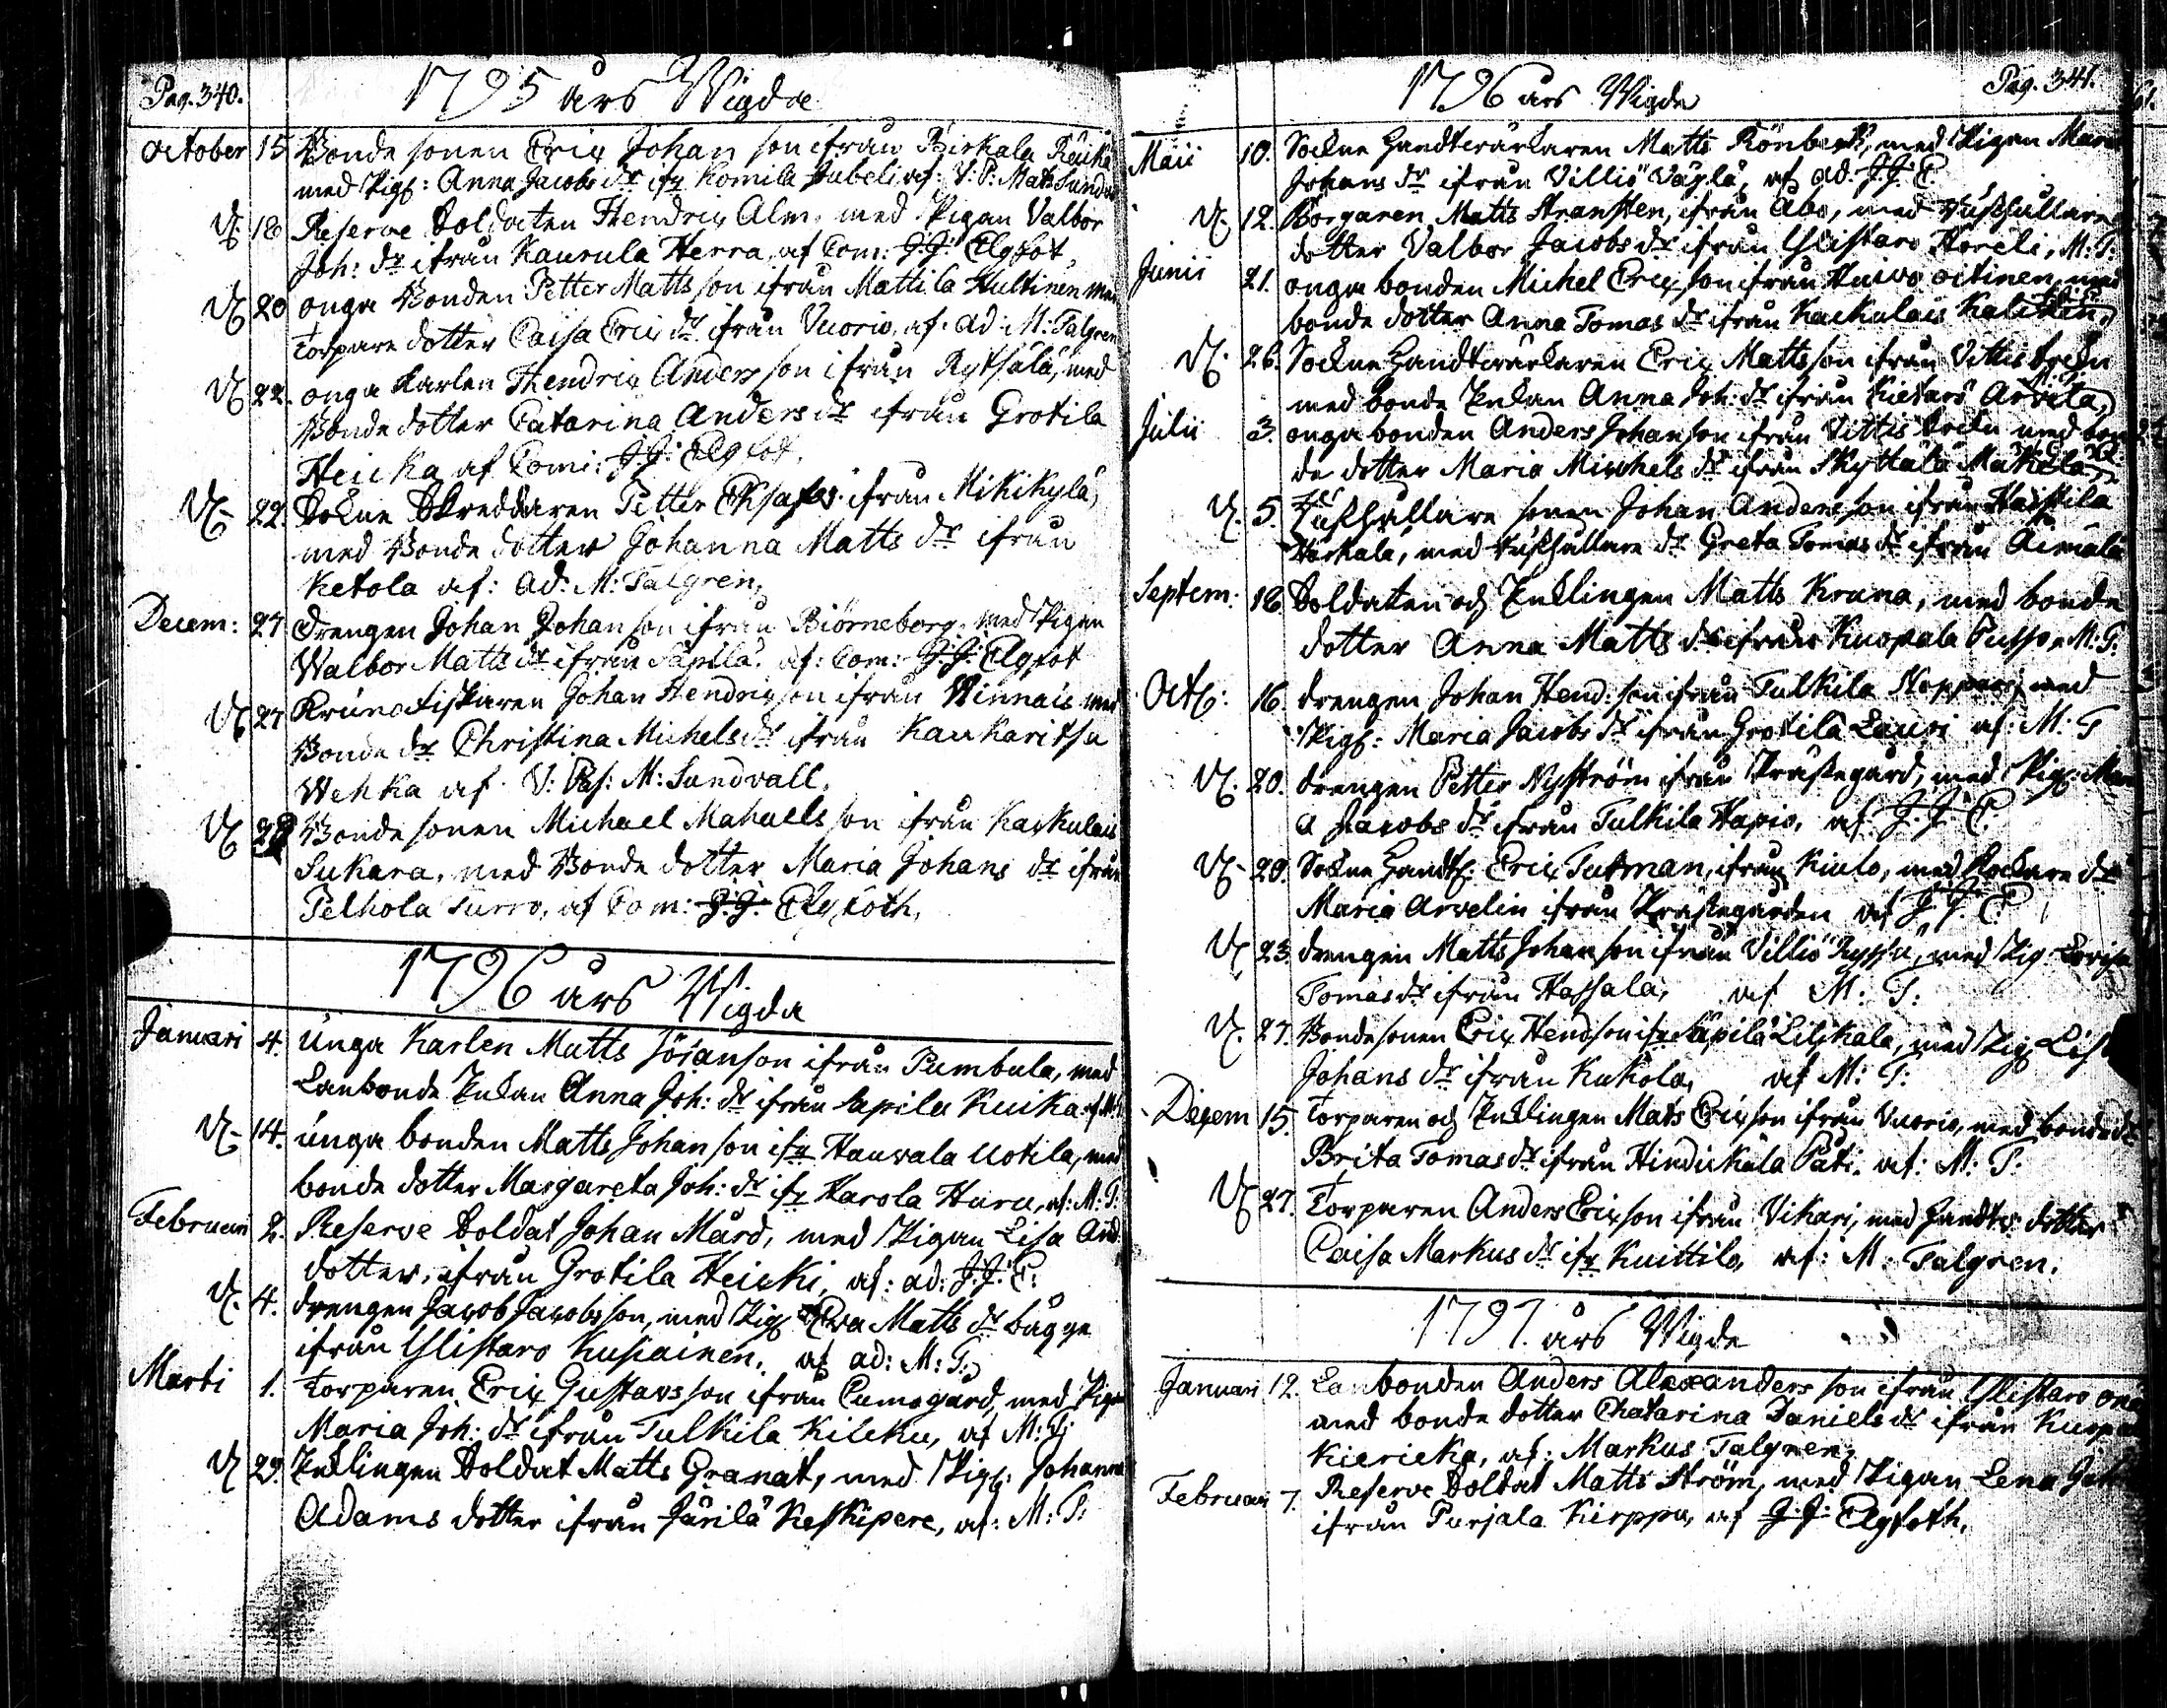 Pag. 340.
1795 års Wigda
October 15 Bonde sonen Eric Johan son ifrån Birkala
med Pig: Anna Jacobs dr ifr Komila Jubeli af: V: P: Mats Sund
18 Reserve Soldaten Hendric Alm, med Pigan Valbor
Joh: dr ifrån Kaurula Herra, af Com: J: J: Elgfot,
20 onga Bonden Petter Matts son ifrån Mattila Hultinen med
Torpare dotter Caisa Eric dr ifrån Vuorio, af: ad: M: Talgren
22. onga Karlen Hendric Anders son ifrån Rytsälä, med
Bonde dotter Catarina Anders dr ifrån Grotila
Heicka af Comi: J: J: Elgfot,
22. Sokne Skreddaren Petter ifrån Mikikylä,
med Bonde dotter Johanna Matts dr ifrån
Ketola af: Ad: M: Talgren,
Decem: 27 Drengen Johan Johan son ifrån Biörneborg, med Pigan
Walbor Matts dr ifrån Säpilä, af: Com: J: J: Elgfot
27 Kruno fiskaren Johan Hendric son ifrån Winnais med
Bonde dr Christina Michels dr ifrån Kaukaritsa
Wehka af V: Pas: M: Sundvall,
28 Bonde sonen Michael Mahaels son ifrån Kackulais
Sukara, med Bonde dotter Maria Johans dr ifrån
Pelhola Turro, af Com: J: J: Elgfoth,
1796 års Wigda
Januari 4. unga Karlen Matts Jöranson ifrån Pumbula, med
Lanbonde Enkan Anna Joh: dr ifrån Säpilä Kuika af M:
14. unga bonden Matts Johan son ifr Hauvala Uotila, med
bonde dotter Margareta Joh: dr ifr Harola Haru, af: M: T:
Februari 2. Reserve Soldat Johan Mård, med Pigan Lisa And
dotter, ifrån Grotila Heicki, af: ad: J: J: E:
4. drengen Jacob Jacobsson, med Pig Eva Matts dr bägge
ifrån Ylistaro Kusiainen, af ad: M: T:
Marti 1. Torparen Eric Gustavsson ifrån Cumogård, med Pigan
Maria Joh: dr ifrån Tulkila Kilcku, af M: T:
29. Enklingen Soldat Matts Granat, med Pig: Johanna
Adams dotter ifrån Järilä Keskipere, af: M: T:
Pag. 341.
1796 års Wigda
Maii 10. Sockne Handtvärkaren Matts Rönberg, med Pigan Maria
Johans dr ifrån Villiö Väplä, af ad: J: J: E.
12. Borgaren Matts Stransten, ifrån Åbo, med Rusthållare
dotter Valbor Jacobs dr ifrån Ylistaro Horeli, M: T:
Junii 21. onga bonden Michel Eric son ifrån Haivo oitinen, med
bonde dotter Anna Tomas dr ifrån Kackulais
26. Sockne Handtvärkaren Eric Matts son ifrån Vittis Sockn
med bonde Enkan Anna Joh: dr ifrån Kietarö Arvela,
Julii 3. onga bonden Anders Johan son ifrån Vittis Sockn med bon
de dotter Maria Michels dr ifrån Skyttälä Mäkelä,
5. Rusthållare sonen Johan Anders son ifrån Haistila
Härkälä, med Rusthållare dr Greta Tomas dr ifrån Äimälä
Septem: 18 Soldaten och Enklingen Matts Kruna, med bonde
dotter Anna Matts dr ifrån Kuopala Pusspa M: T:
Oct: 16. drengen Johan Hend: son ifrån Tulkila Noppari, med
Pig: Maria Jacobs dr ifrån Grotila Lauri af: M: T
20. drengen Petter Nyström ifrån Prästegård, med Pig: Mari
a Jacobs dr ifrån Tulkila Hapio, af J: J: E.
20. Sockne Handt: Eric Tutman, ifrån Kiulo, med Klockare dr
Maria Arvelin ifrån Prästegården af J: J: E:
23. drengen Matts Johan son ifrån Villiö Ryssä, med Pig Lovisa
Tomas dr ifrån Hassala, af M: T:
27. Bonde sonen Eric Hendson ifr Säpilä Lilikala, med Pig Lis
Johans dr ifrån Kukola, af M: T:
Decem 15. Torparen och Enklingen Mats Eric son ifrån Vuorio, med bonde dr
Brita Tomas dr ifrån Hindickälä Päti. af: M: T:
27. Torparen Anders Eric son ifrån Vikari, med Handtv: dotter
Caisa Markus dr ifr Kuittilo, af: M: Talgren.
1797. års Wigde
Januari 12. Lanbonden Anders Alexanders son ifrån Ylistaro
med bonde dotter Chatarina Daniels dr ifrån
Kiericka, af: Markus Talgren,
Februari 7. Reserve Soldat Matts Ström, med Pigan Lena Joh
ifrån Purjala Kirppu, af J: J: Elgfoth.